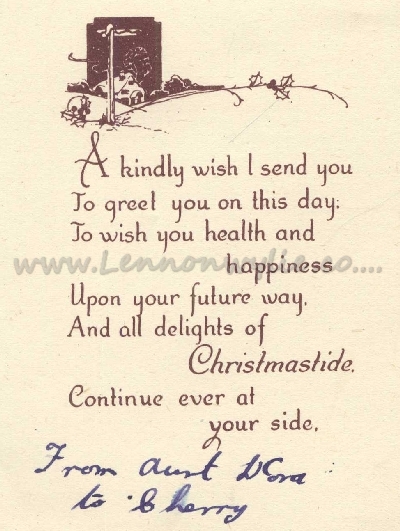 A kindly wish I send you
To greet you on this day;
To wish you health and
happiness
Upon your future way,
And all delights of
Christmastide,
Continue ever at
your side.
From Aunt Dora
to Cherry